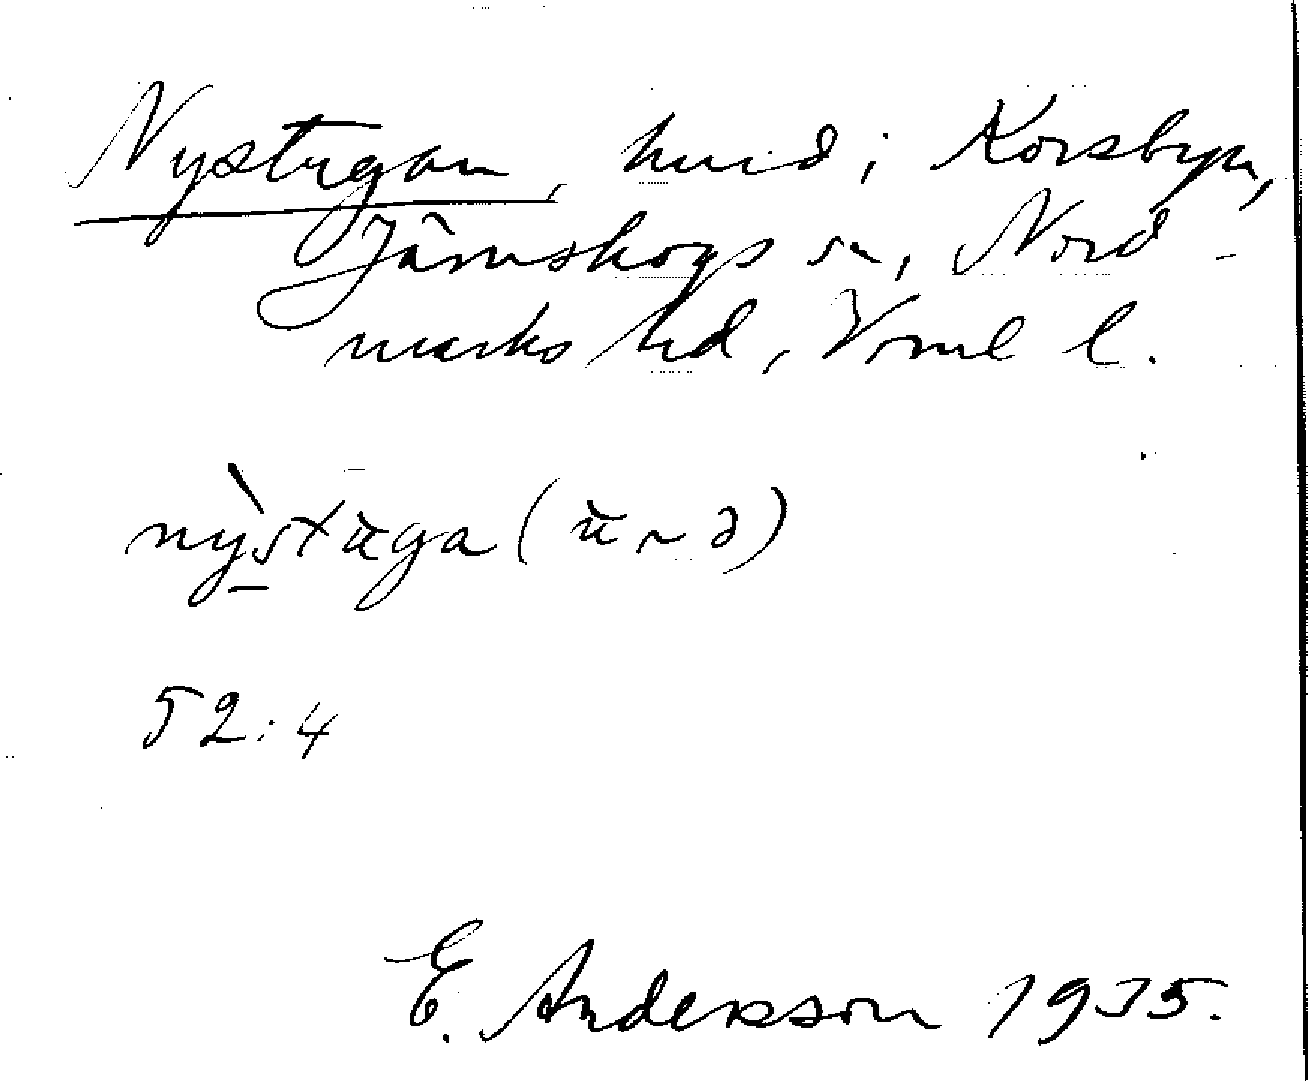 Nystugan, hmd i Korsbyn,
Järnskogs sn, Nord-
marks hd, Vrml l.
nỳstuga (u ~ ə)
52:4
E. Anderson 1935.